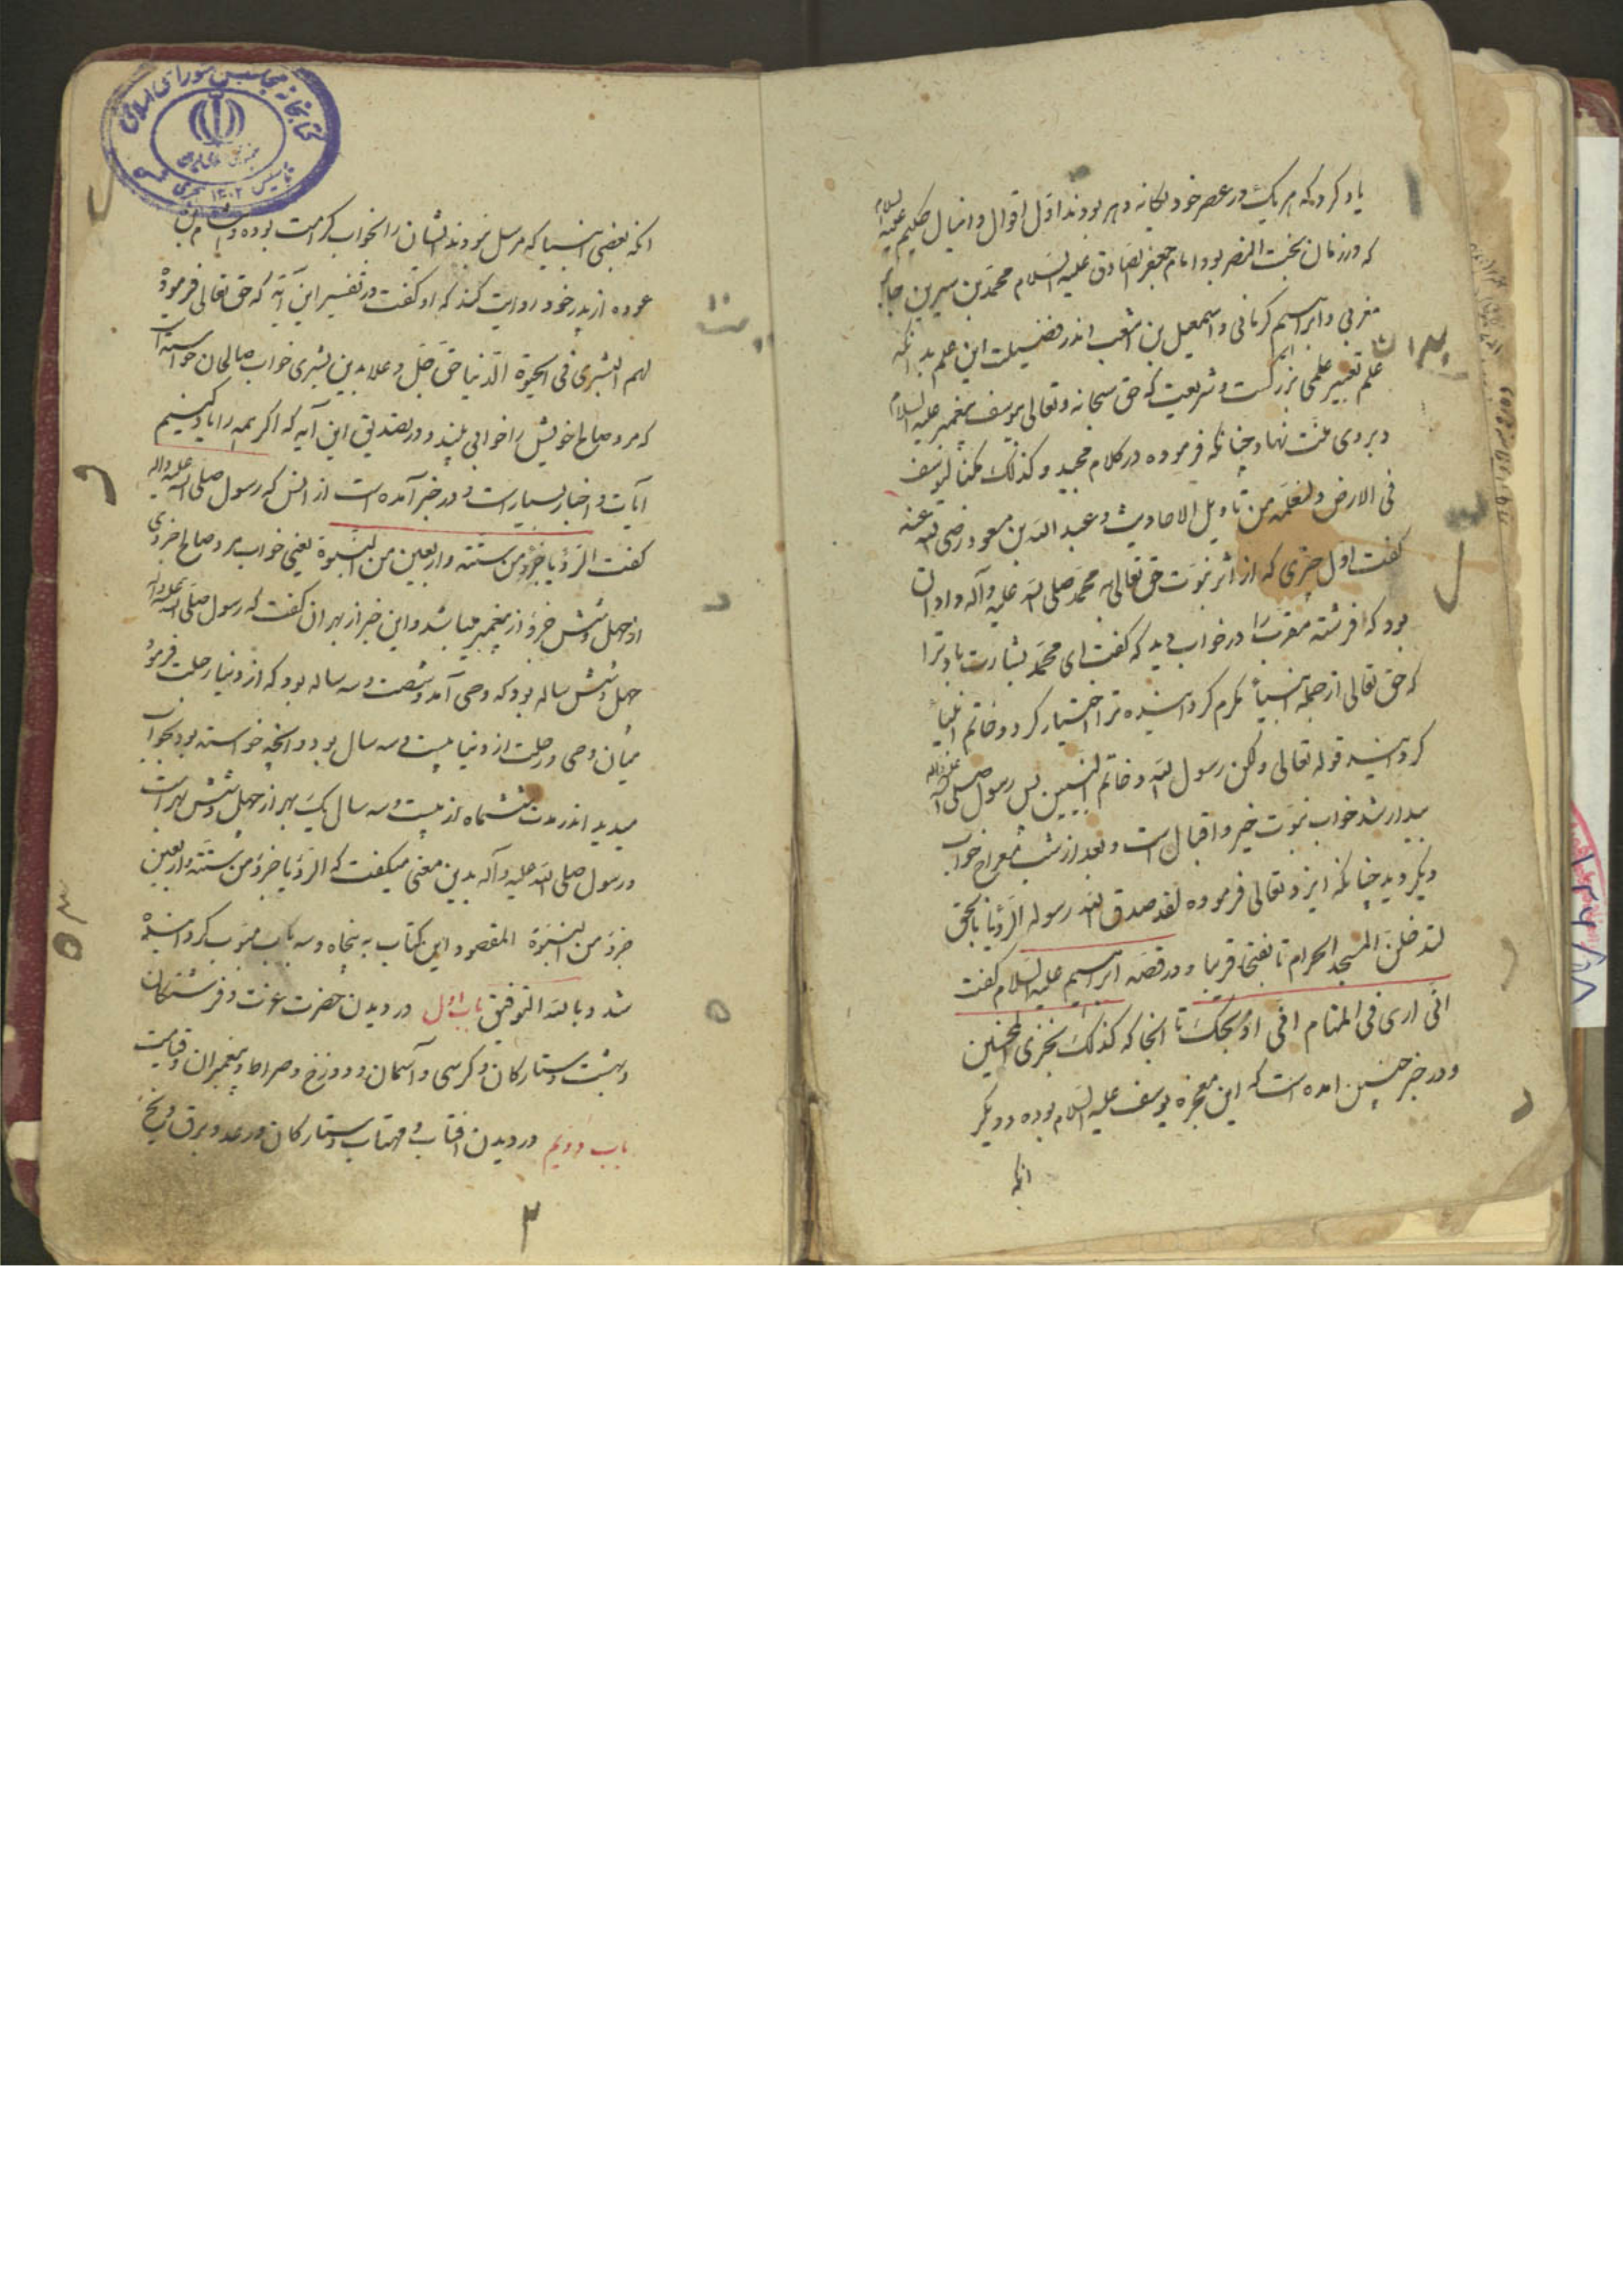 یاد کرد که هر یک در عصر خود یگانه دهر بودند اول اقوال دانیال حکیم علیه السلام
که در زمان بخت النصر بود امام جعفر الصادق علیه السلام محمد بن سیرین جابر
مغربی و ابراهیم کرمانی و اسمعیل بن اشعب اندر فضیلت این علم بدانکه
علم تعبیر علمی بزرگست و شریعیت که حق سبحانه و تعالی یوسف پیغمبر علیه السلام
و بر وی منت نهاد چنانکه فرموده در کلام مجید و کذلک مکنا لیوسف
فی الارض و لنعلمه من تاویل الاحادیث و عبد الله بن مسعود رضی الله عنه
گفت اول چیزی که از اثر نبوت حق تعالی به محمد صلی الله علیه و آله داد آن
بود که فرشته مقرب را در خواب دید که گفت ای محمد بشارت باد ترا
که حق تعالی از جمله انبیا مکرم گردانیده ترا اختیار کرد و خاتم انبیا
گردانید قوله تعالی ولکن رسول الله و خاتم النبیین پس رسول صلی الله علیه و آله
بیدار شد خواب نبوت خیر و اقبال است و بعد از شب معراج خواب
دیگر دید چنانکه ایزد تعالی فرموده لقد صدق الله رسوله الرؤیا بالحق
لتدخلن المسجد الحرام تا فتحا قریبا و در قصه ابراهیم علیه السلام گفت
انی اری فی المنام انی اذبحک تا انجا که کذلک نجزی المحسنین
و در خبر چنین امده است که این معجزه یوسف علیه السلام بوده و دیگر
انکه
انکه بعضی انبیا که مرسل نبودند ایشان را بخواب کرامت بوده و هشام بن
عروه از پدر خود روایت کند که او گفت در تفسیر این آیة که حق تعالی فرموده
لهم البشری فی الحیوة الدنیا حق جل و علا بدین بشری خواب صالحان خواسته است
که مرد صالح خویش را خوابی بیند و در تصدیق این آیه که اگر همه را یاد کنیم
آیات و اخبار بسیار است و در خبر آمده است از انس که رسول صلی الله علیه و اله
گفت الرؤیا جزؤ من ستة و اربعین من النبوة یعنی خواب مرد صالح جزوی
از چهل و شش جزؤ از پیغمبر میباشد و این خبر از بهر ان گفت که رسول صلی الله علیه و آله
چهل و شش ساله بود که وحی آمد و شصت و سه ساله بود که از دنیا رحلت فرمود
میان وحی و رحلت از دنیا بیست و سه سال بود و انچه خواسته بود بخواب
میدید اندر مدت ششماه از بیست و سه سال یک بهر از چهل و شش بهر است
و رسول صلی الله علیه و آله بدین معنی میگفت که الرؤیا جزؤ من ستة و اربعین
جزؤ من النبوة المقصود این کتاب به پنجاه و سه باب مبوب گردانیده
شد و بالله التوفیق باب اول در دیدن حضرت عزت و فرشتگان
و بهشت و ستارگان و کرسی و آسمان و دوزخ و صراط و پیغمبران و قیامت
باب دویم در دیدن افتاب و مهتاب و ستارگان و رعد و برق و یخ
۳
کتابخانه مجلس شورای اسلامی
تاسیس ۱۳۰۲ هجری